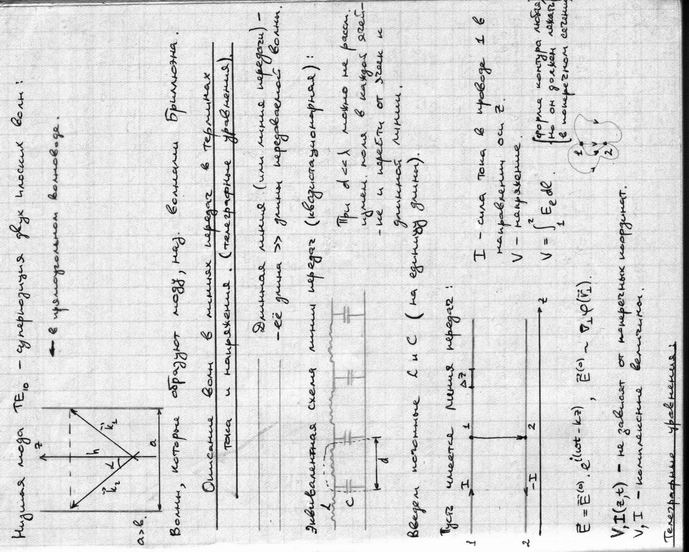 Низшая мода TE₁₀ – суперпозиция двух плоских волн:
← в прямоугольном волноводе.
z
h
α
k⃗₂
k⃗₁
a
a>b.
Волны, которые образуют моду, наз. волнами Бриллюэна.
Описание волн в линиях передач в терминах
тока и напряжения. (телеграфные уравнения).
Длинная линия (или линия передачи) –
– её длина >> длины передаваемой волны.
Эквивалентная схема линии передач (квазистационарная):
L
C
d
При d<<λ можно не расст.
измен. поля в каждой ячей-
-ке и перейти от ячеек к
длинной линии.
Введем погонные L и C (на единицу длины).
Пусть имеется линия передач:
1
I
1
Δz
2
-I
2
z
I – сила тока в проводе 1 в
направлении оси z.
V – напряжение.
V = ∫₁² E_e dl.
[форма контура любая,
но он должен лежать
в поперечном сечении
1
2
E⃗ = E⃗⁽⁰⁾ · e^{i(ωt-kz)}, E⃗⁽⁰⁾ ~ ∇⊥φ(r⃗⊥).
V, I(z,t) – не зависят от поперечных координат.
V, I – комплексные величины.
Телеграфные уравнения: